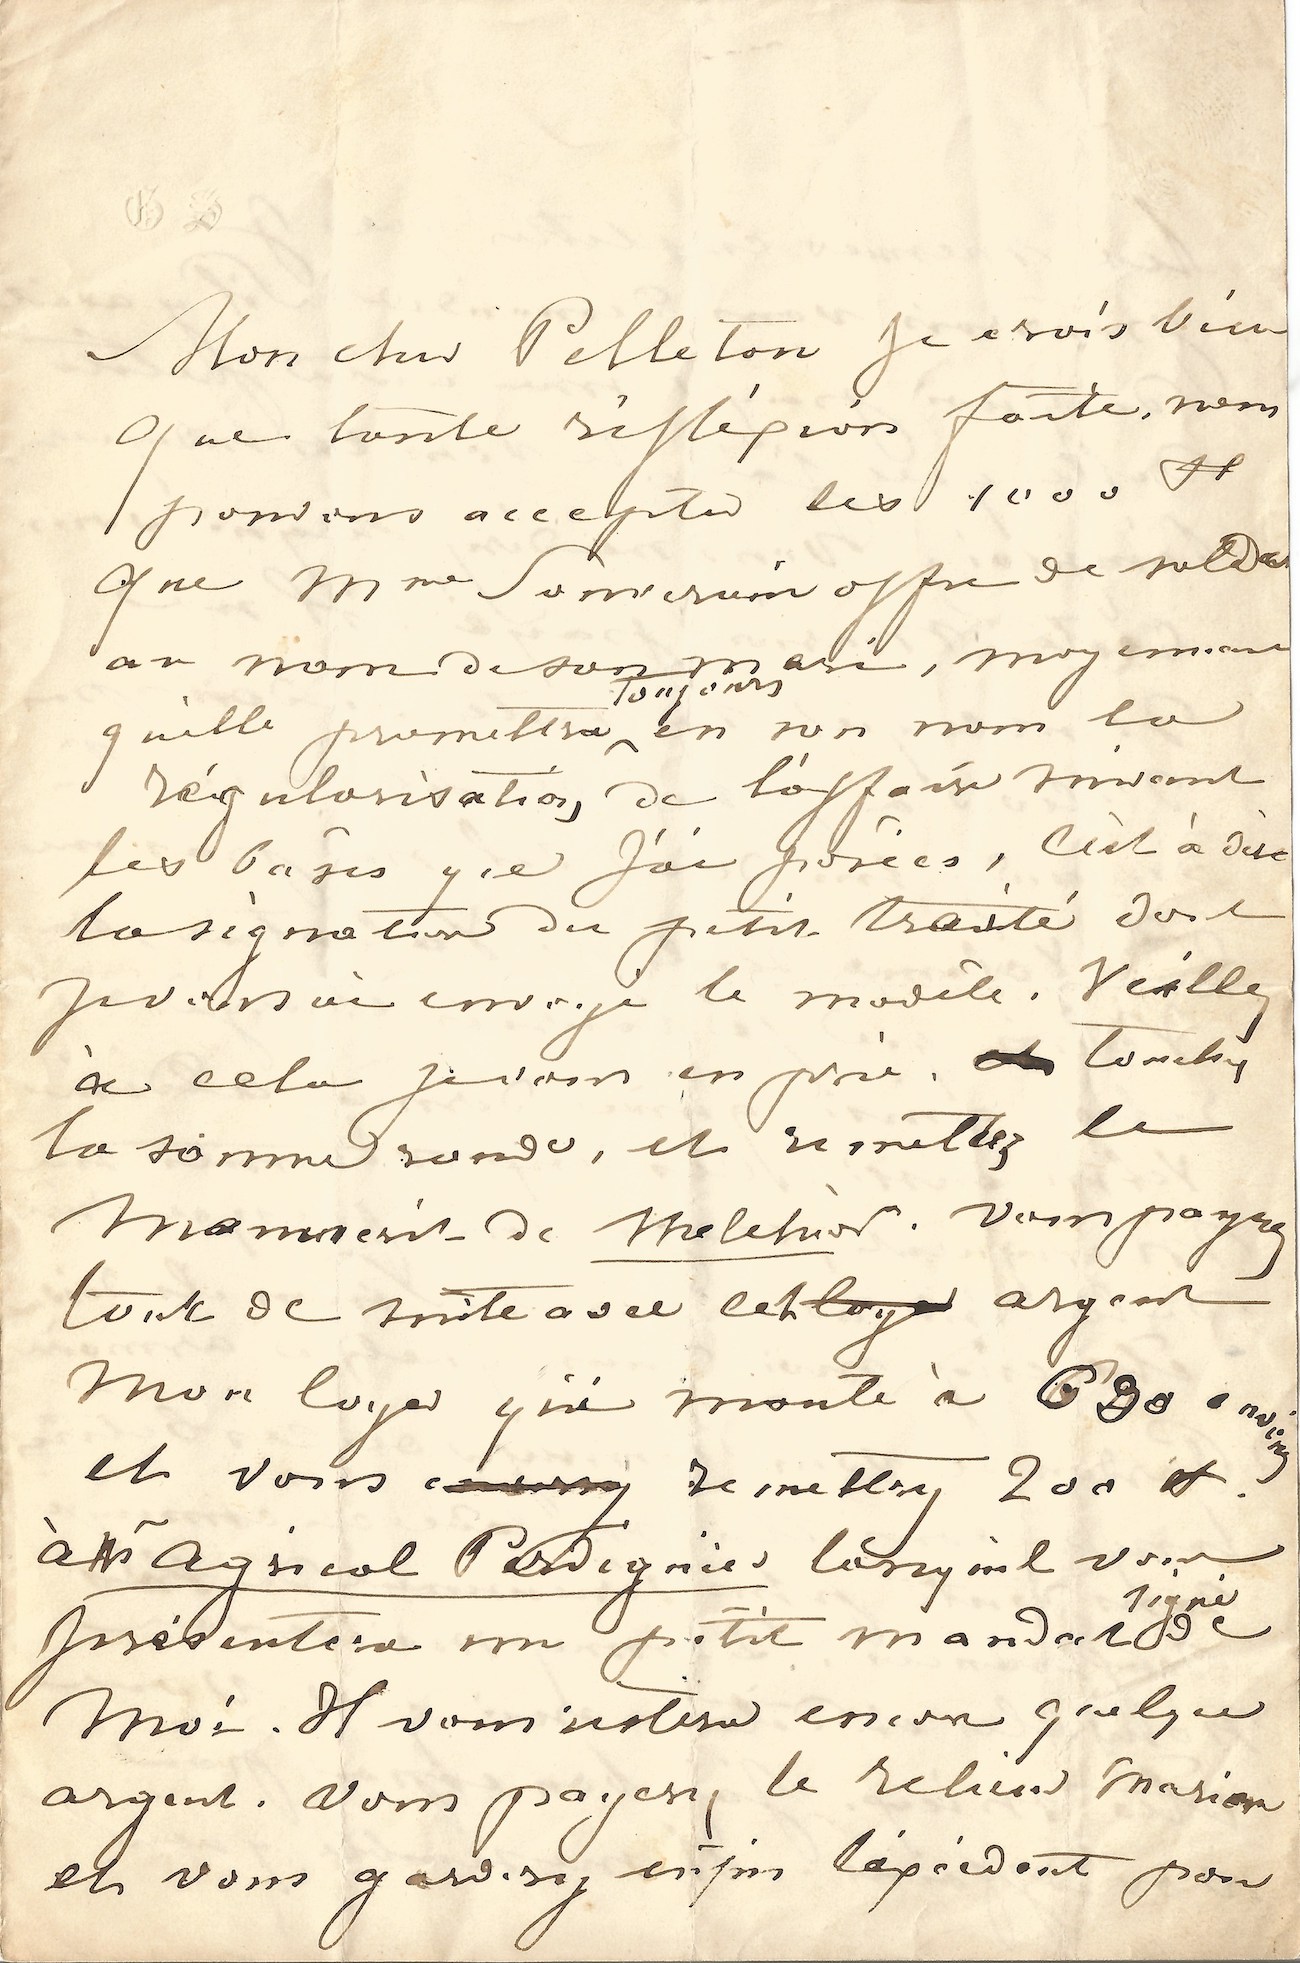 Mon cher Pelleton je crois bien
que toute réflexion faite, nous
pouvons accepter les 1000 ₶
que Mme Souverain offre de solder
au nom de son mari, moyennant
qu'elle promettra toujours en son nom la
régularisation de l'affaire suivant
les bases que j'ai posées, c'est à dire
la signature du petit traité dont
je vous ai envoyé le modèle. Veillez
à cela je vous en prie. Touchez
la somme ronde, et remettez le
Manuscrit de Melchior. Vous payrez
tout de suite avec cet loyer argent
Mon loyer qui monte à environ
et vous remettrez 200 ₶.
à Mr Agricol Perdiguier lorsqu'il vous
présentera un petit mandat signé de
Moi. Il vous restera encore quelque
argent. Vous payerez le relieur Marion
et vous garderez enfin l'éxcédent pour